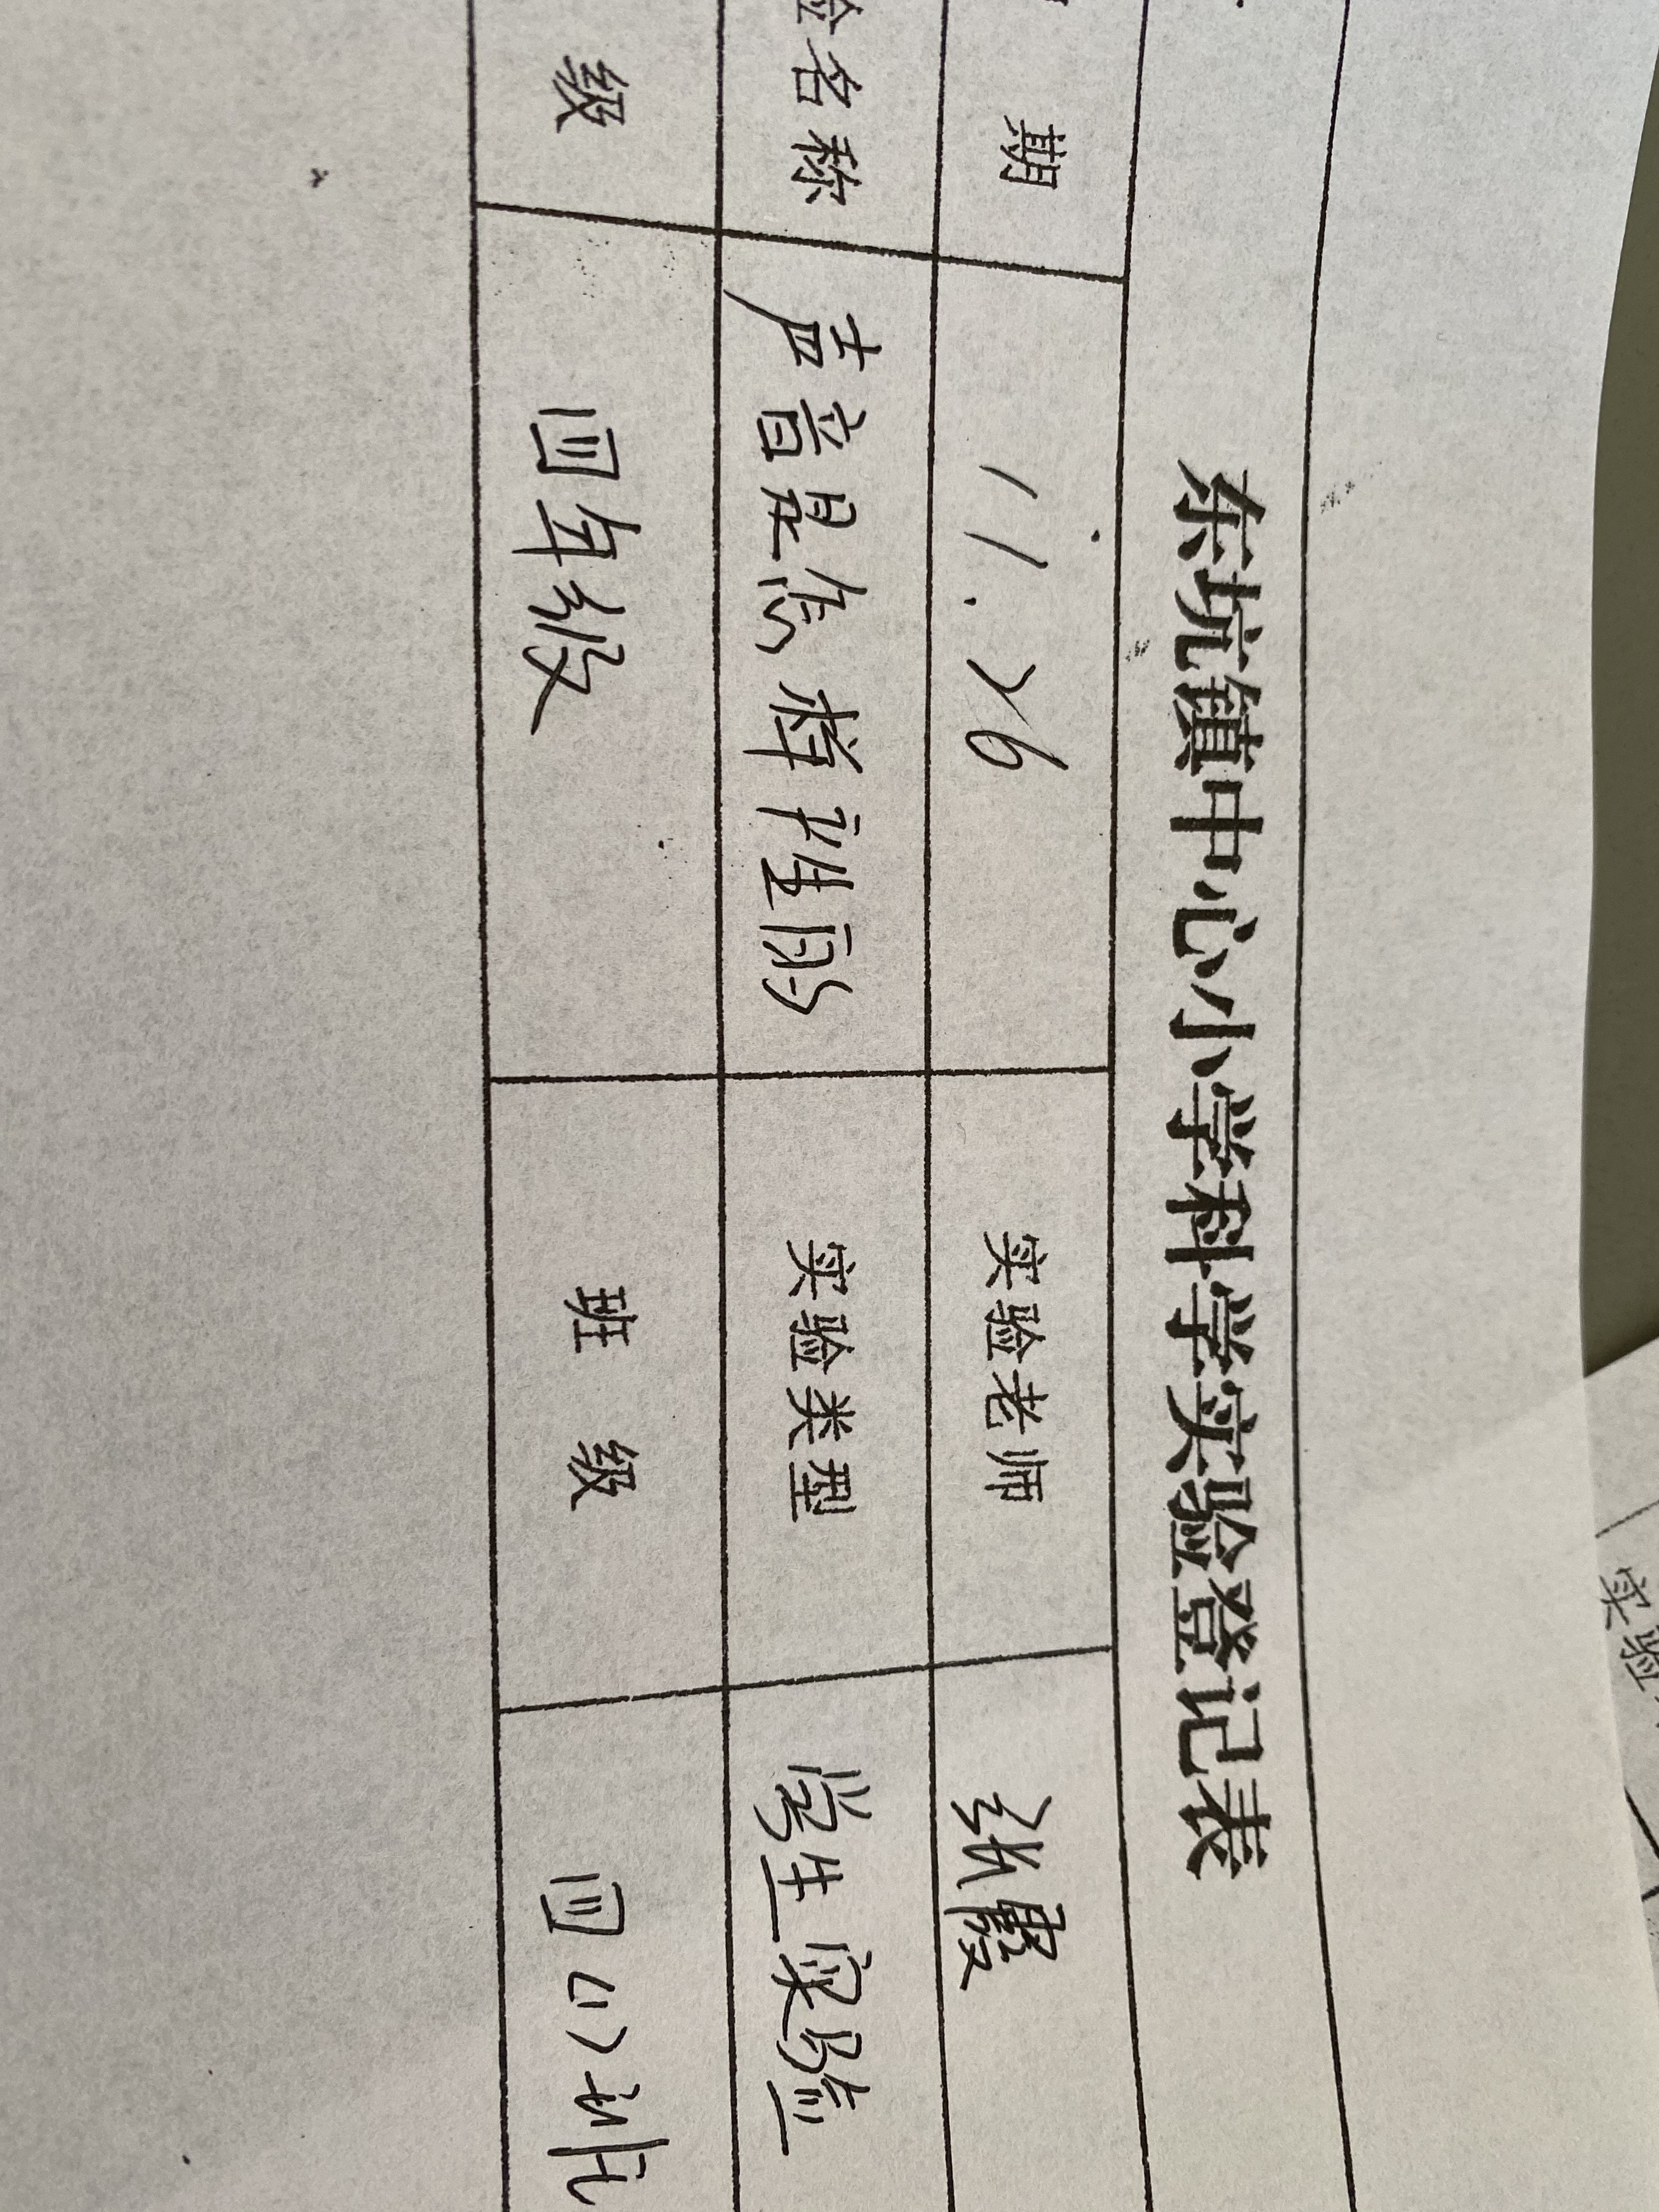 东坑镇中心小学科学实验登记表
期 11.26 实验老师 张霞
验名称 声音是怎样产生的 实验类型 学生实验
级 四年级 班 级 四(1)班
实验